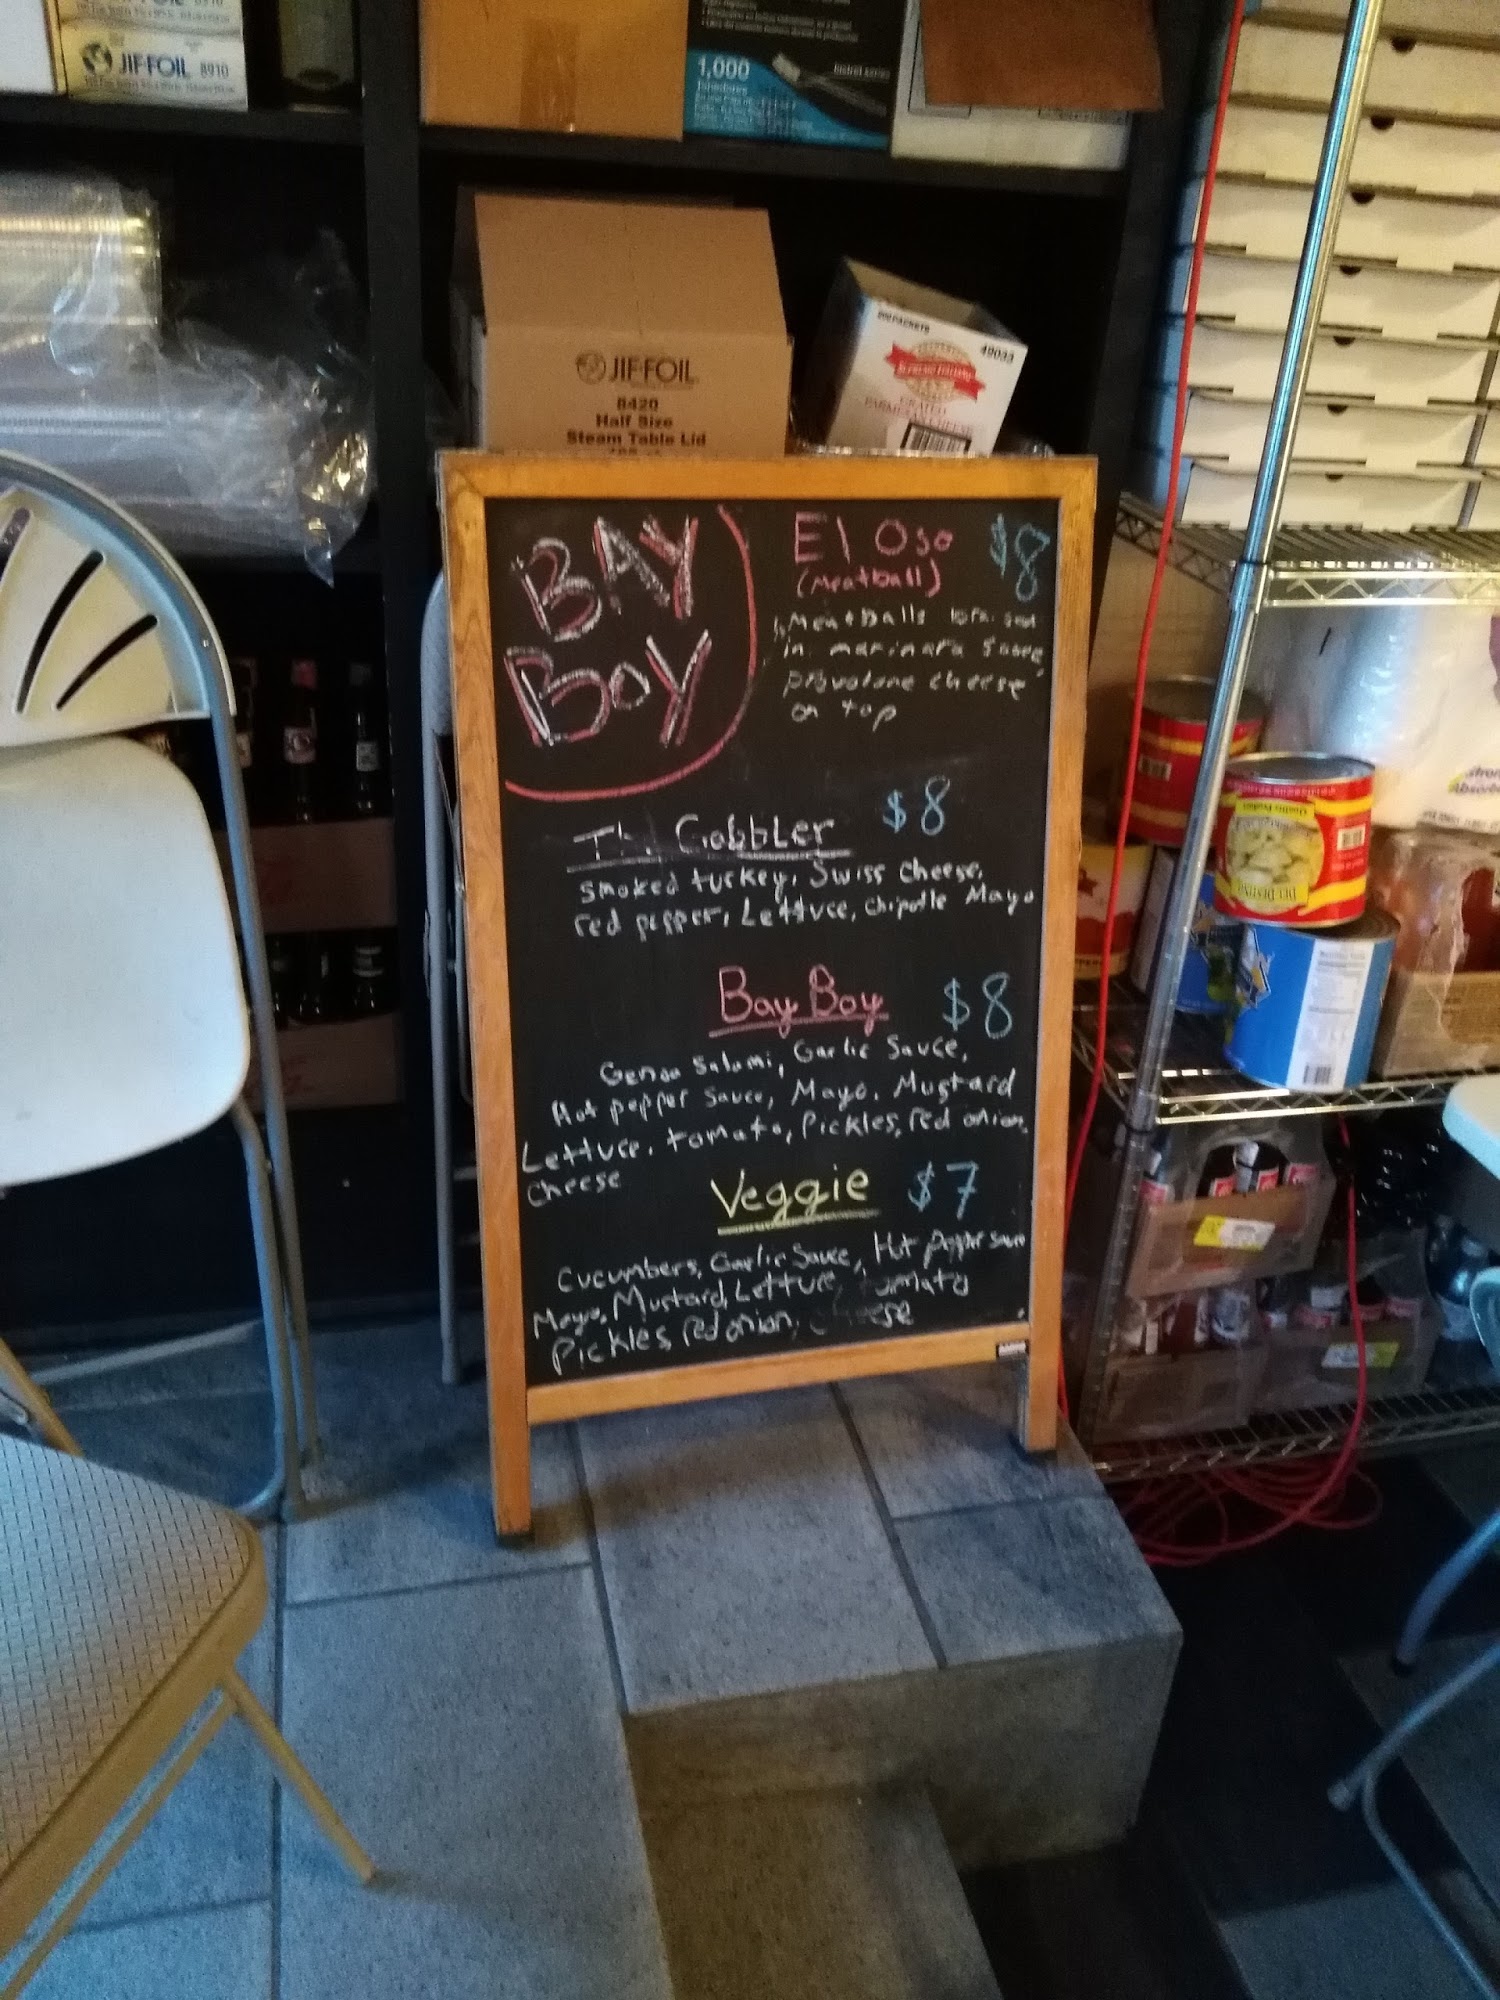 JIF-FOIL 8910
1,000
JIF-FOIL
8420
Half Size
Steam Table Lid
49033
GRATED
PARMESAN CHEESE
BAY
BOY
El Oso $8
(Meatball)
Meatballs braised
in marinara sauce
provolone cheese
on top
The Gobbler $8
smoked turkey, Swiss cheese,
red pepper, Lettuce, chipotle Mayo
Bay Boy $8
Genoa Salami, Garlic Sauce,
Hot pepper sauce, Mayo, Mustard
Lettuce, tomato, Pickles, red onion,
cheese
Veggie $7
Cucumbers, Garlic Sauce, Hot pepper sauce
Mayo, Mustard, Lettuce, tomato
Pickles, red onion, cheese